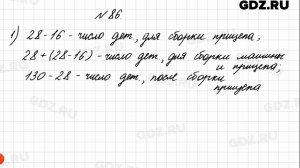 GDZ.RU
№ 86.
1) 28-16 - число дет, для сборки прицепа;
28+(28-16) - число дет, для сборки машины
и прицепа;
130-28 - число дет, после сборки
прицепа